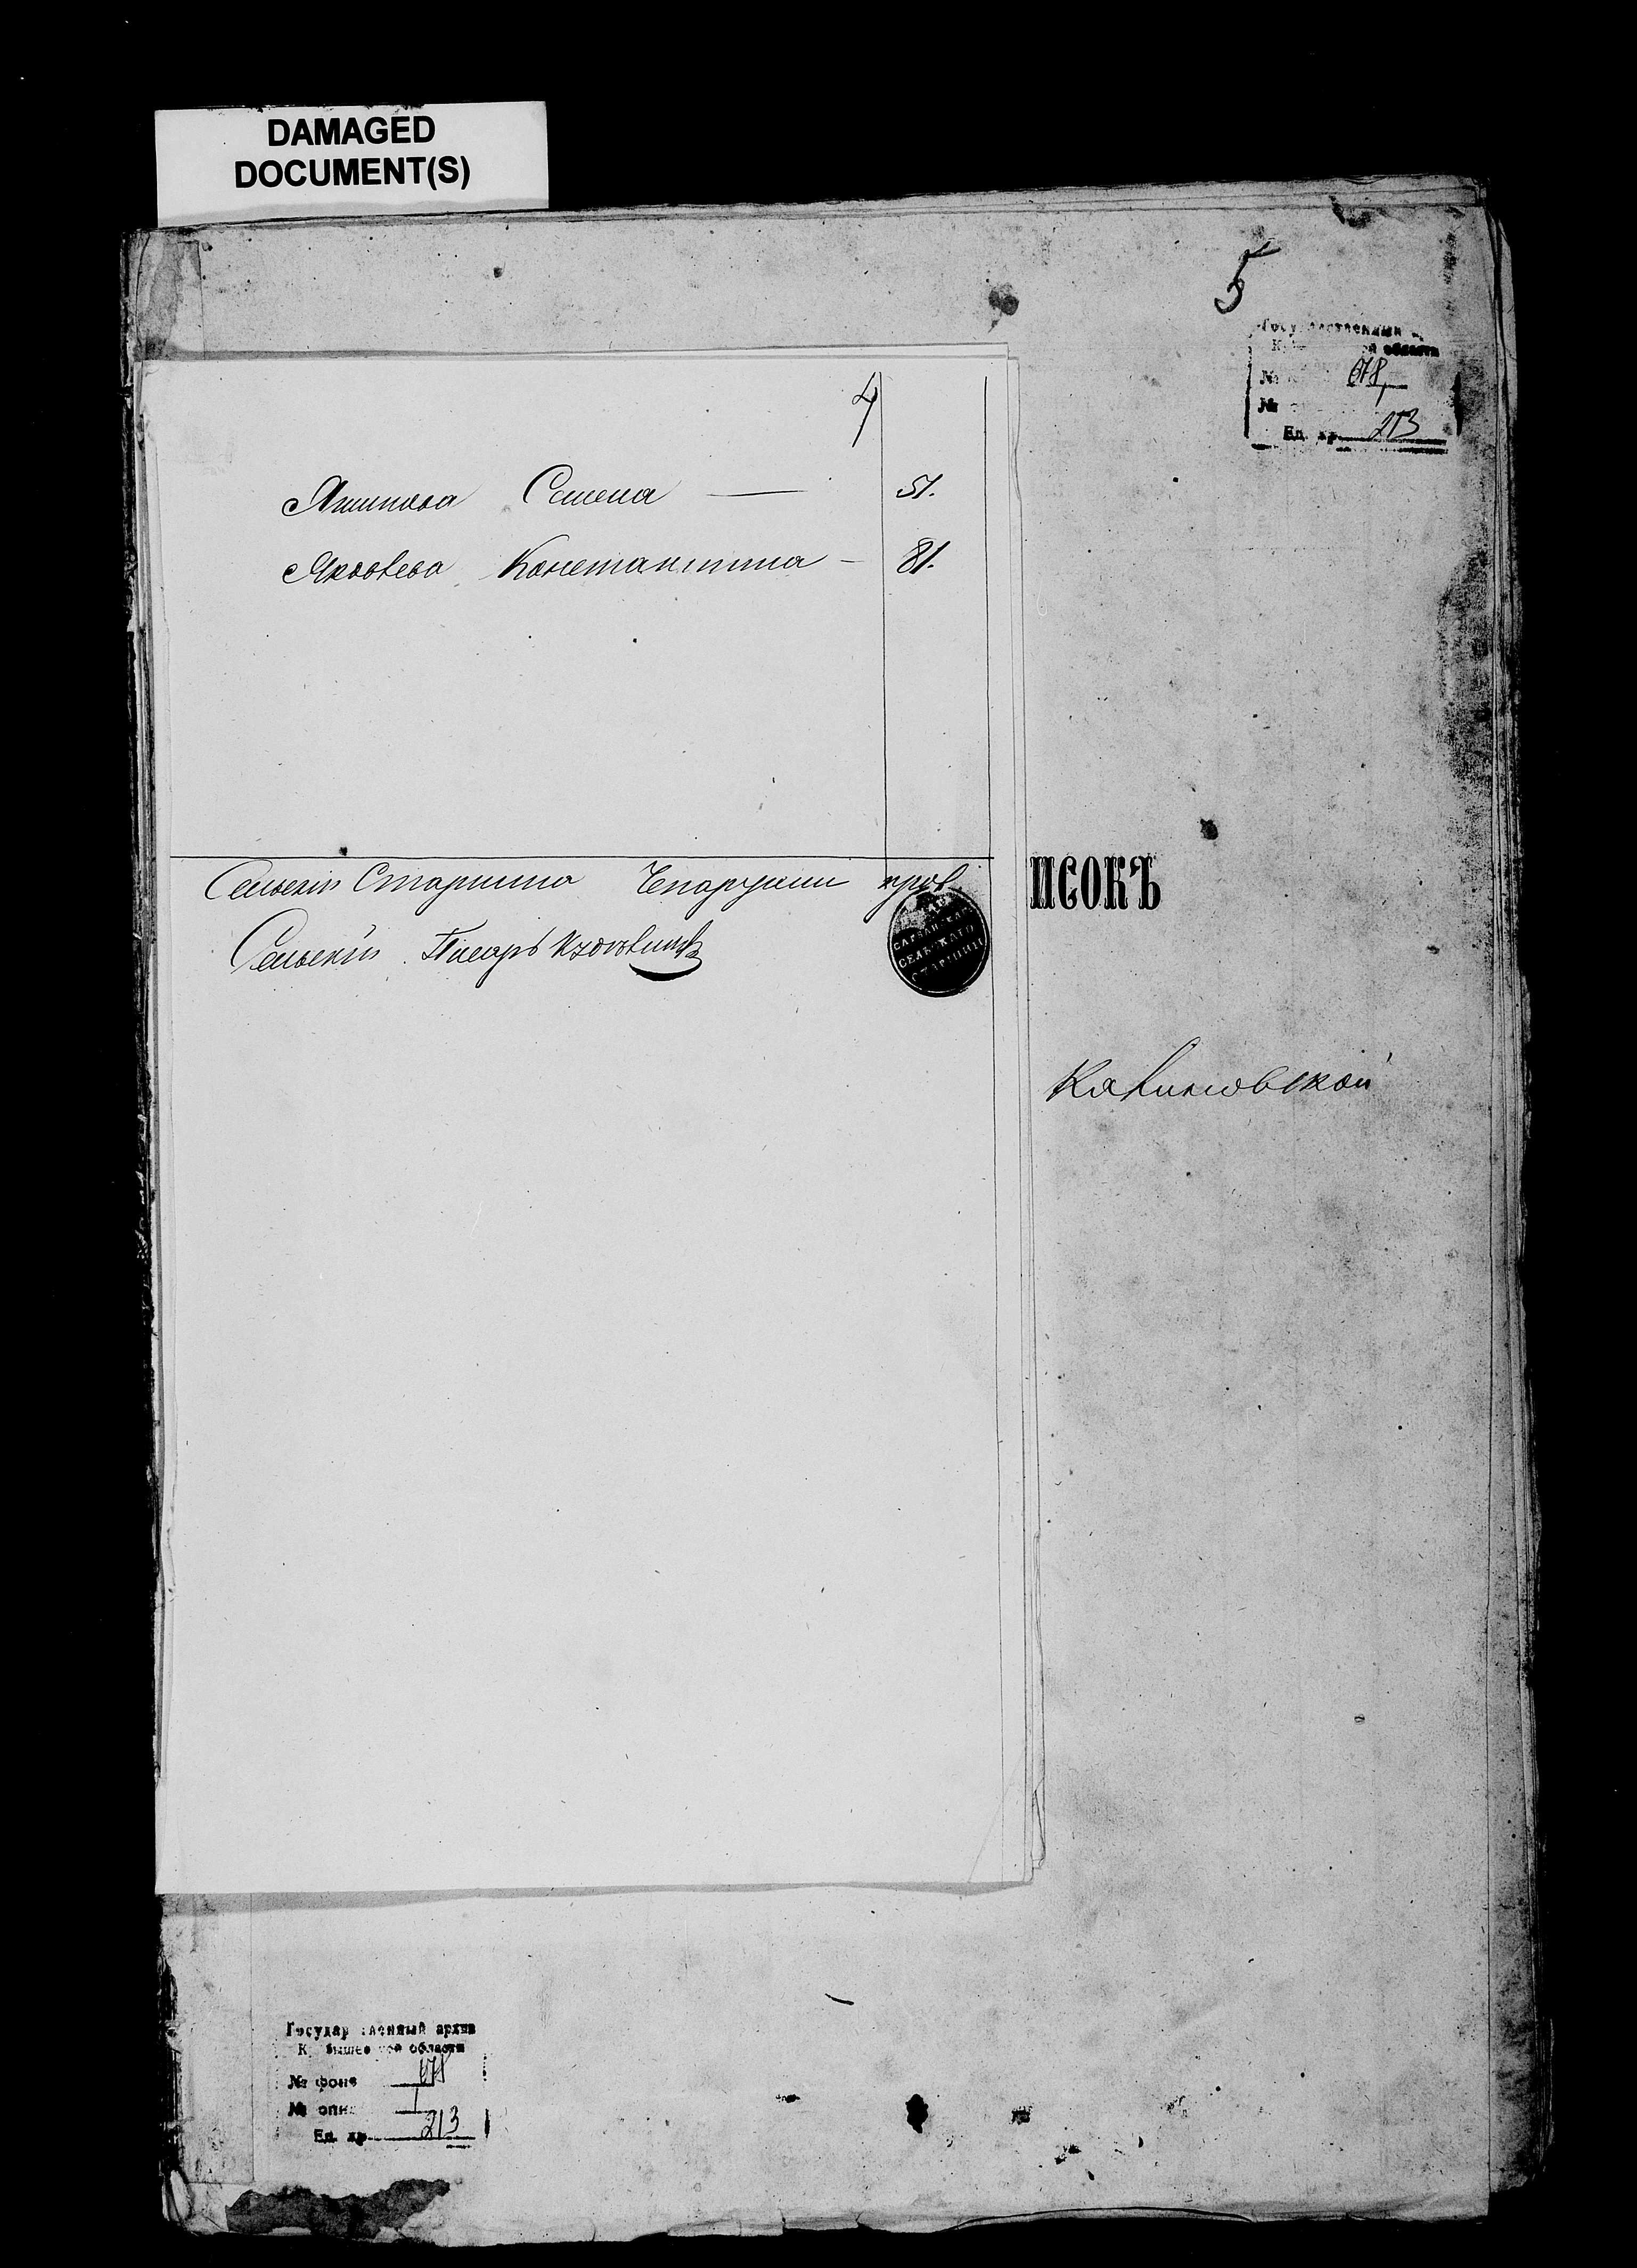 DAMAGED
DOCUMENT(S)
5
Государственный
К й области
№ 678
№
Ед. хр. 213
4
Семена — 51.
Яковлева Константина — 81.
Сельскій Старшина
СЕЛЬСКАГО
СТАРШИНЫ
Сельскій Писарь
ИСОКЪ
Калиновской
Государственный архив
К бышевской области
№ фонд 678
№ опис 1
Ед. хр. 213